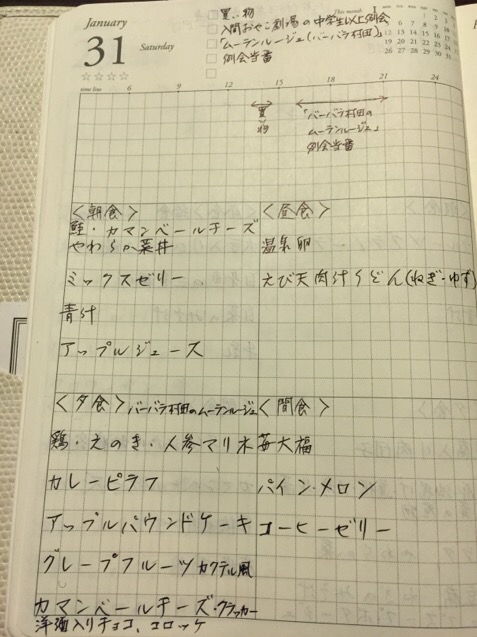 January
31
Saturday
買い物
入間おやこ劇場の中学生以上例会
「ムーランルージュ(バーバラ村田)」
例会当番
This month
time line 6 9 12 15 18 21 24
買い物
「バーバラ村田の
ムーランルージュ」
例会当番
<朝食>
鮭・カマンベールチーズ
やわらか菜丼
ミックスゼリー
青汁
アップルジュース
<昼食>
温泉卵
えび天肉汁うどん(ねぎ・ゆず)
<夕食>バーバラ村田のムーランルージュ
鶏・えのき・人参マリネ
カレーピラフ
アップルパウンドケーキ
グレープフルーツカクテル風
カマンベールチーズ・クラッカー
洋酒入りチョコ、コロッケ
<間食>
苺大福
パイン・メロン
コーヒーゼリー